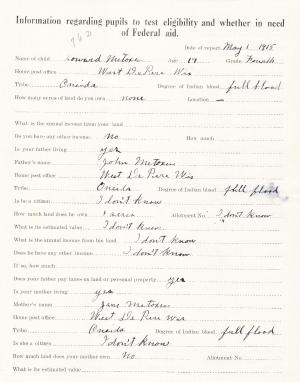 Information regarding pupils to test eligibility and whether in need
of Federal aid.
Date of report, May 1 1915
Name of child Howard Metoxen Age 19 Grade Fourth
Home post office West De Pere Wis
Tribe Oneida Degree of Indian blood full blood
How many acres of land do you own none Location —
What is the annual income from your land
Do you have any other income No How much
Is your father living yes
Father's name John Metoxen
Home post office West De Pere Wis
Tribe Oneida Degree of Indian blood full flood
Is he a citizen I don't know
How much land does he own acres Allotment No. I don't know
What is its estimated value I don't know
What is the annual income from his land I don't know
Does he have any other income I don't know
If so, how much
Does your father pay taxes on land or personal property yes
Is your mother living yes
Mother's name Jane Metoxen
Home post office West De Pere Wis
Tribe Oneida Degree of Indian blood full flood
Is she a citizen I don't know
How much land does your mother own No Allotment No.
What is its estimated value